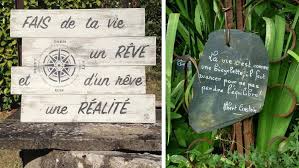 FAIS de la vie
un RÊVE
et d'un rêve
une RÉALITÉ
La vie c'est comme
une bicyclette, il faut
avancer pour ne pas
perdre l'équilibre
Albert Einstein